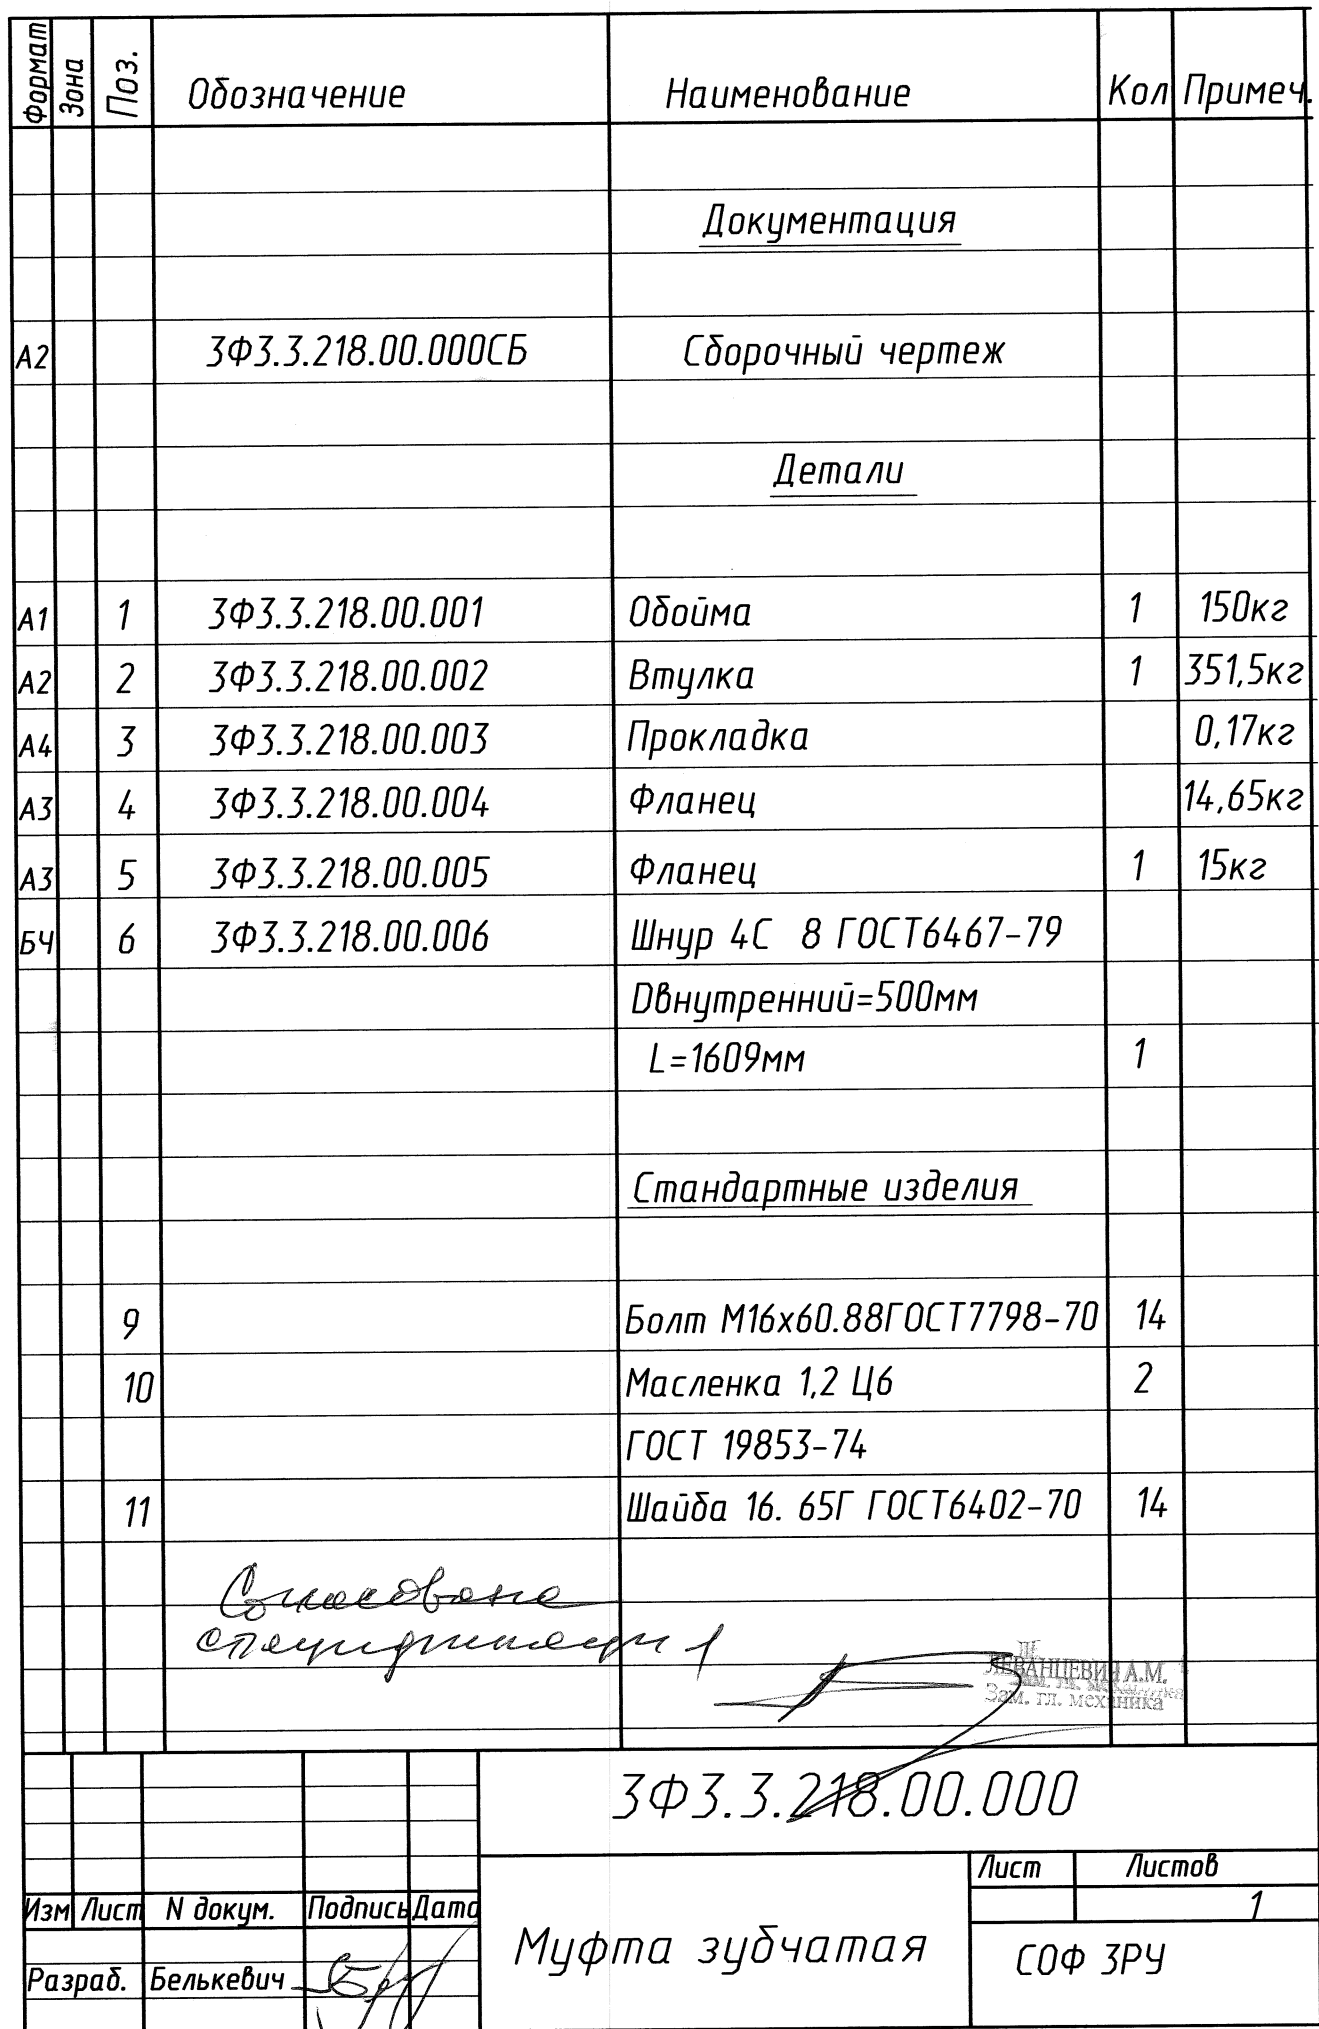 Формат Зона Поз. Обозначение Наименование Кол Примеч.
Документация
А2 3Ф3.3.218.00.000СБ Сборочный чертеж
Детали
А1 1 3Ф3.3.218.00.001 Обойма 1 150кг
А2 2 3Ф3.3.218.00.002 Втулка 1 351,5кг
А4 3 3Ф3.3.218.00.003 Прокладка 0,17кг
А3 4 3Ф3.3.218.00.004 Фланец 14,65кг
А3 5 3Ф3.3.218.00.005 Фланец 1 15кг
БЧ 6 3Ф3.3.218.00.006 Шнур 4С 8 ГОСТ6467-79
Dвнутренний=500мм
L=1609мм 1
Стандартные изделия
9 Болт М16х60.88ГОСТ7798-70 14
10 Масленка 1,2 Ц6 2
ГОСТ 19853-74
11 Шайба 16. 65Г ГОСТ6402-70 14
Согласовано
спецификация
ЛЕВАНЦЕВИЧ А.М.
Зам. гл. механика
3Ф3.3.218.00.000
Лист Листов
1
Изм Лист N докум. Подпись Дата
Муфта зубчатая
СОФ 3РУ
Разраб. Белькевич